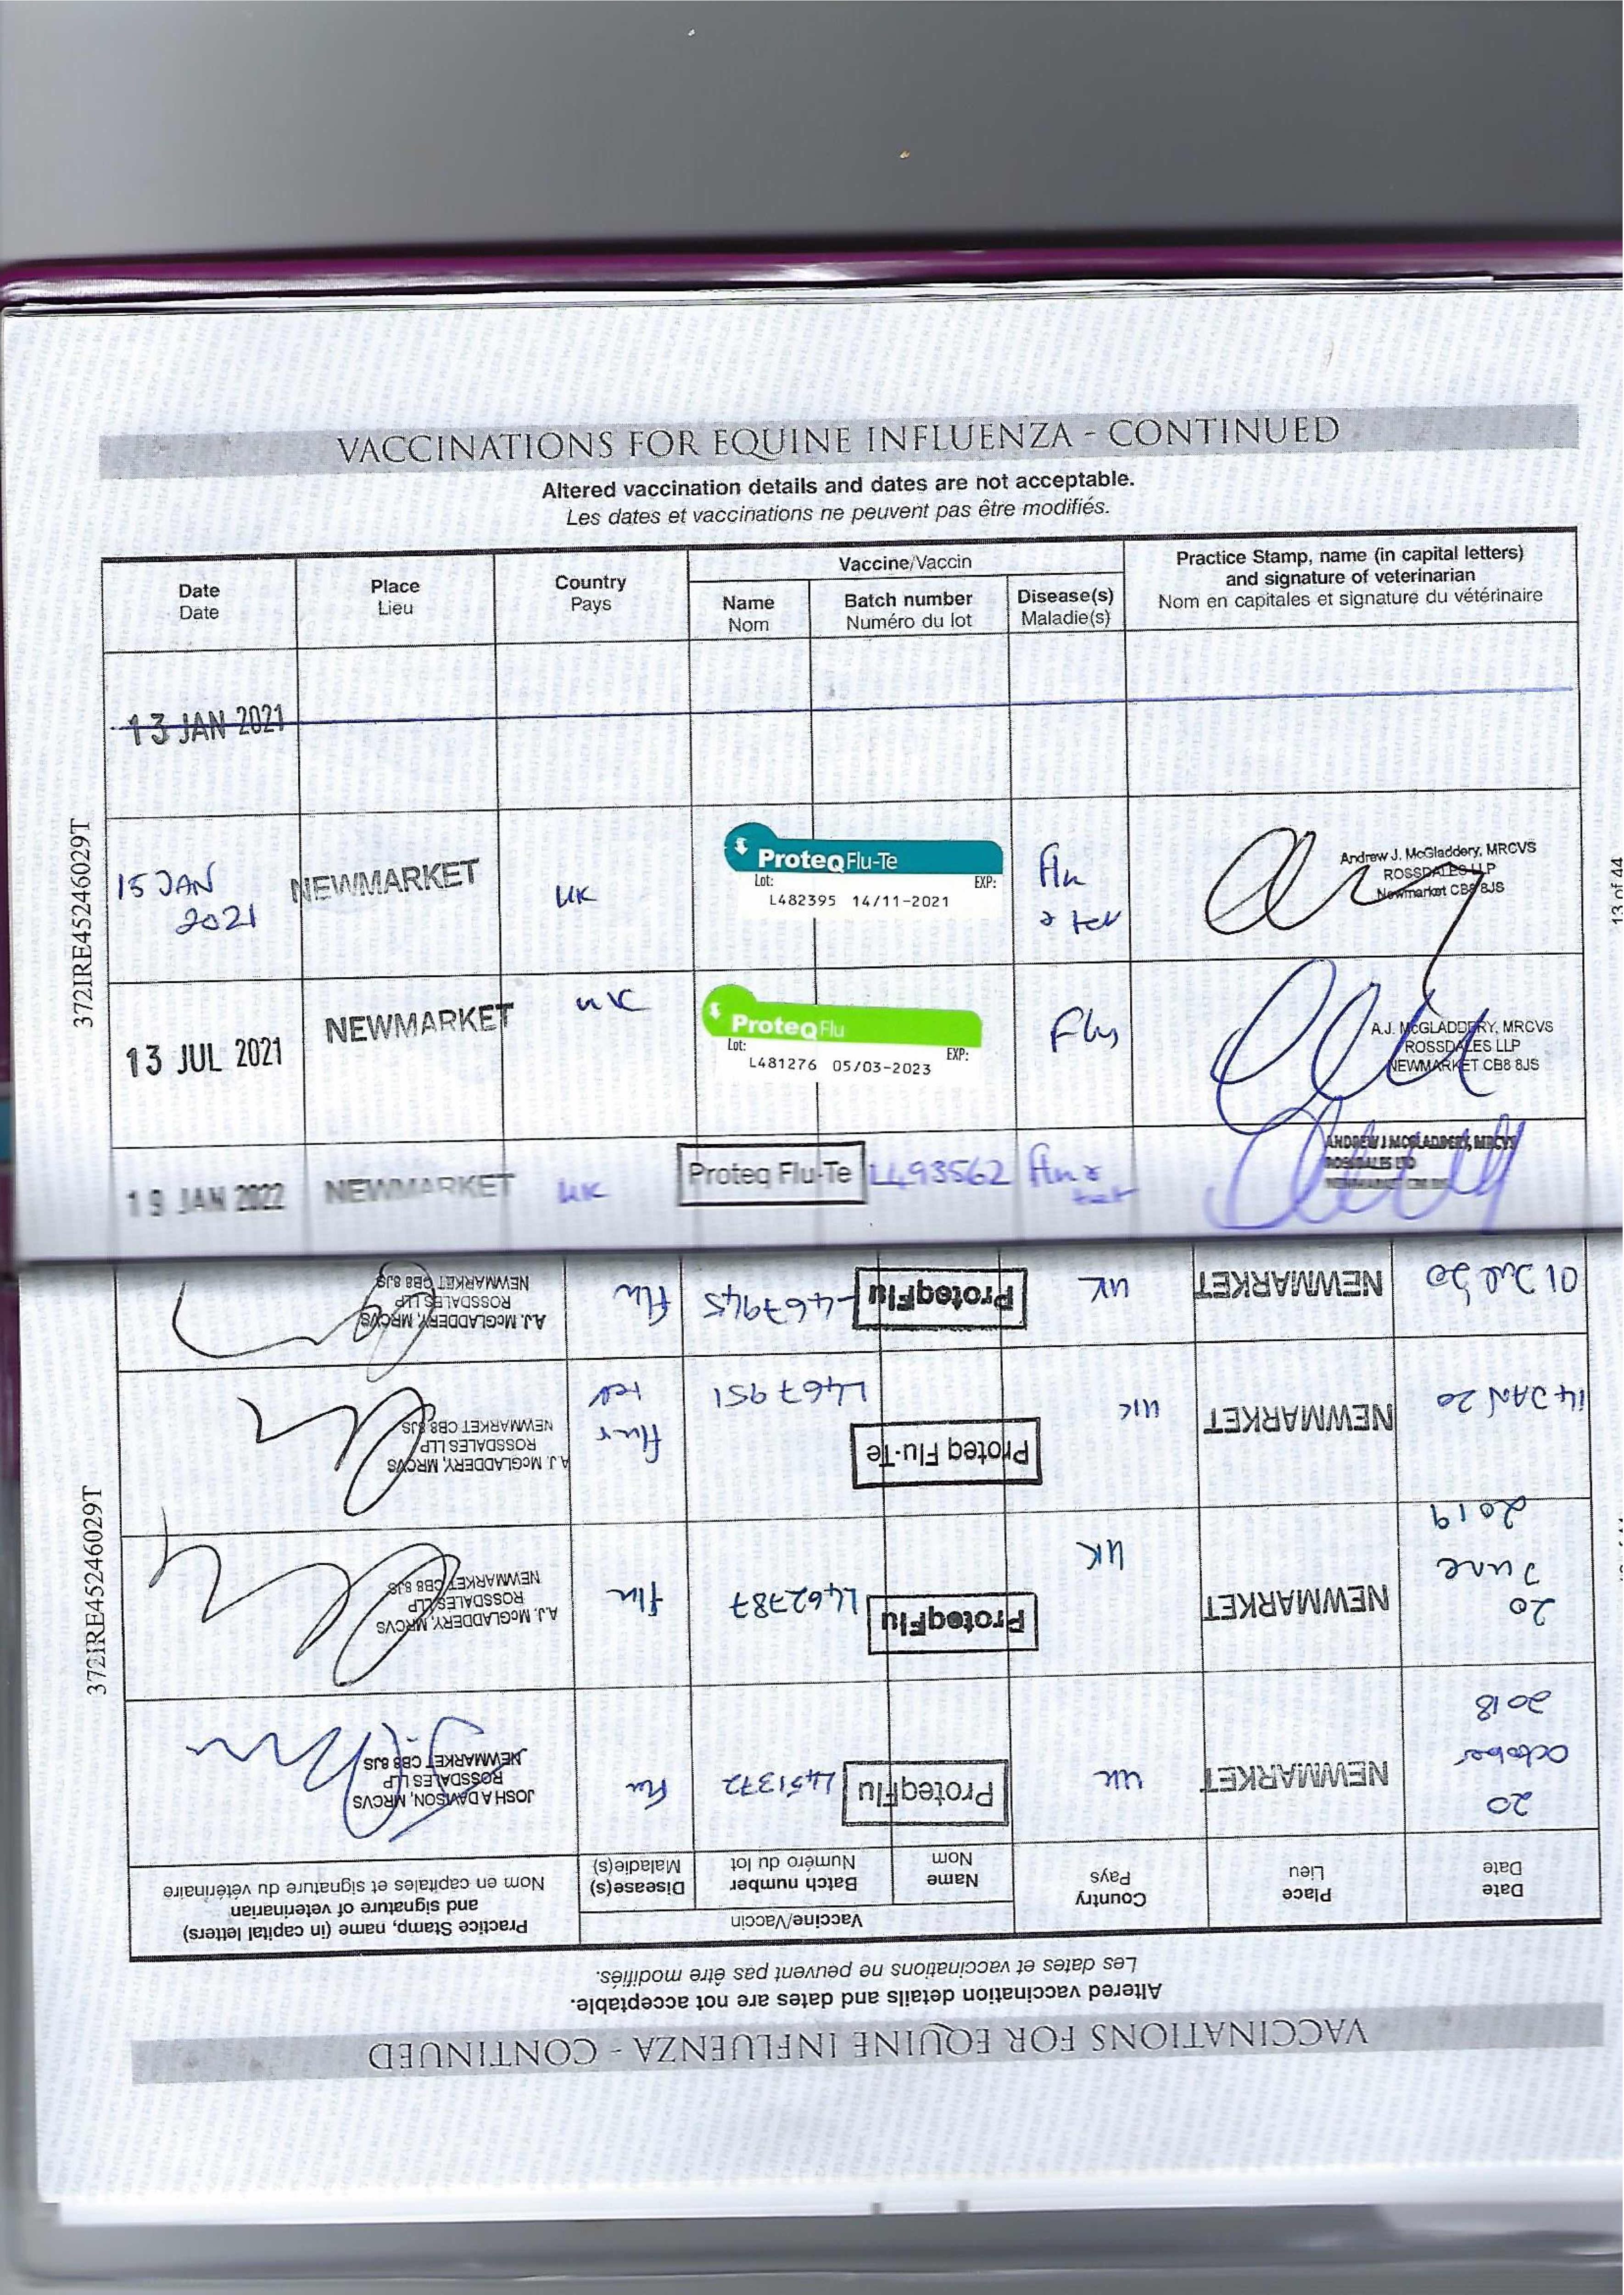 VACCINATIONS FOR EQUINE INFLUENZA - CONTINUED
Altered vaccination details and dates are not acceptable.
Les dates et vaccinations ne peuvent pas être modifiés.
Date
Date
Place
Lieu
Country
Pays
Vaccine/Vaccin
Name
Nom
Batch number
Numéro du lot
Disease(s)
Maladie(s)
Practice Stamp, name (in capital letters)
and signature of veterinarian
Nom en capitales et signature du vétérinaire
13 JAN 2021
15 JAN
2021
NEWMARKET
UK
ProteqFlu-Te
Lot: EXP:
L482395 14/11-2021
Flu
& tet
Andrew J. McGladdery, MRCVS
ROSSDALES LLP
Newmarket CB8 8JS
13 JUL 2021
NEWMARKET
UK
ProteqFlu
Lot: EXP:
L481276 05/03-2023
Flu
A.J. McGLADDERY, MRCVS
ROSSDALES LLP
NEWMARKET CB8 8JS
19 JAN 2022
NEWMARKET
UK
Proteq Flu-Te
L493562
Flu &
tet
ANDREW J MCGLADDERY, MRCVS
ROSSDALES LTD
372IRE45246029T
13 of 44
VACCINATIONS FOR EQUINE INFLUENZA - CONTINUED
Altered vaccination details and dates are not acceptable.
Les dates et vaccinations ne peuvent pas être modifiés.
Date
Date
Place
Lieu
Country
Pays
Vaccine/Vaccin
Name
Nom
Batch number
Numéro du lot
Disease(s)
Maladie(s)
Practice Stamp, name (in capital letters)
and signature of veterinarian
Nom en capitales et signature du vétérinaire
20
October
2018
NEWMARKET
UK
ProteqFlu
L451372
Flu
JOSH A DAVISON, MRCVS
ROSSDALES LLP
NEWMARKET CB8 8JS
20
June
2019
NEWMARKET
UK
ProteqFlu
L462787
Flu
A.J. McGLADDERY, MRCVS
ROSSDALES LLP
NEWMARKET CB8 8JS
14 JAN 20
NEWMARKET
UK
Proteq Flu-Te
L467951
Flu &
tet
A.J. McGLADDERY, MRCVS
ROSSDALES LLP
NEWMARKET CB8 8JS
01 Jul 20
NEWMARKET
UK
ProteqFlu
L467945
Flu
A.J. McGLADDERY, MRCVS
ROSSDALES LLP
NEWMARKET CB8 8JS
372IRE45246029T